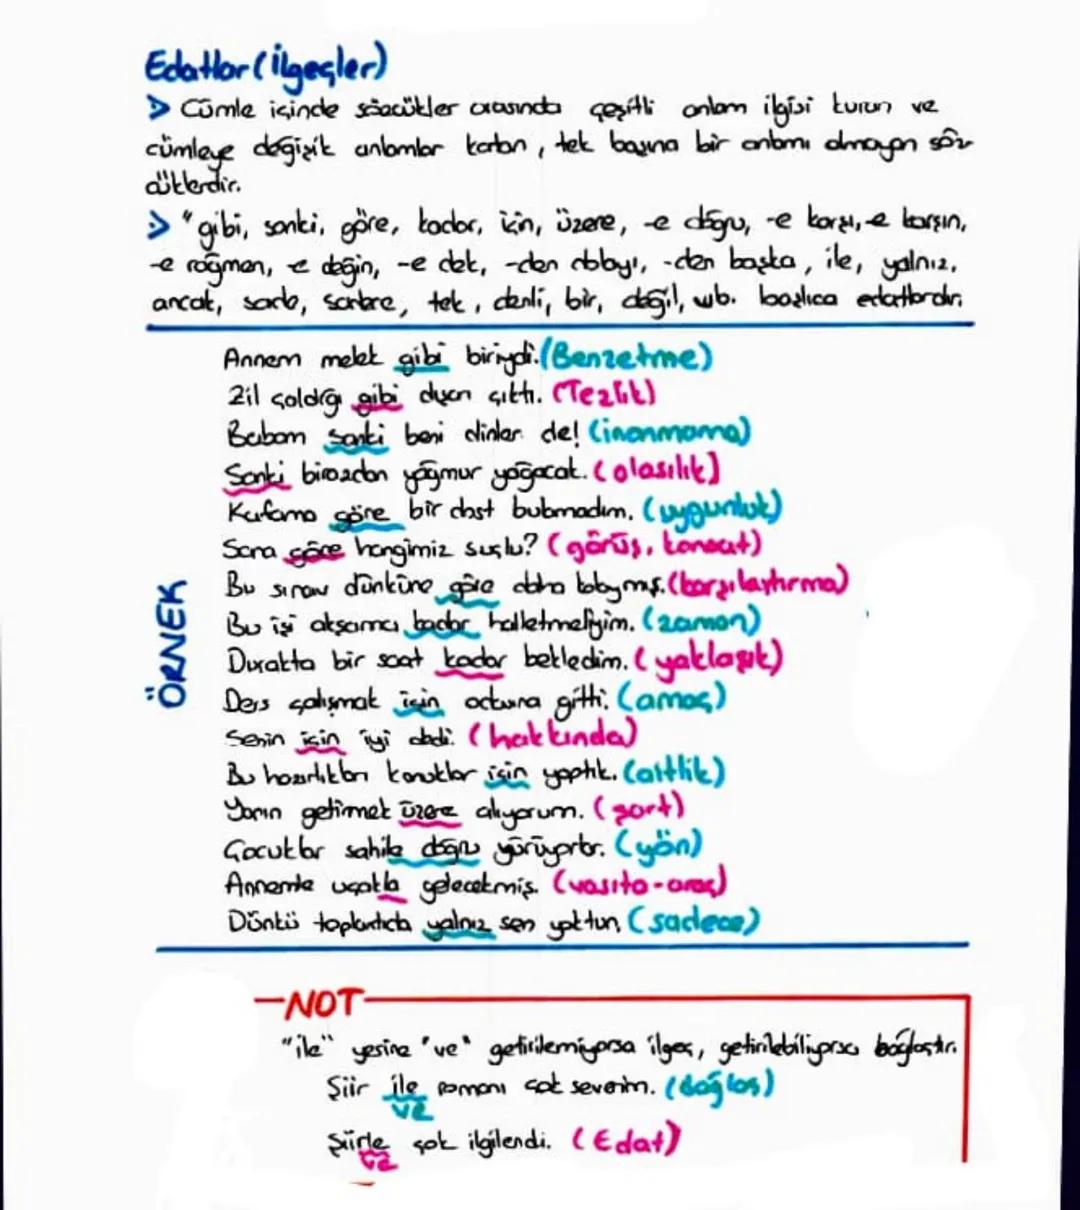 Edatlar (İlgeçler)
> Cümle içinde sözcükler arasında çeşitli anlam ilgisi kuran ve
cümleye değişik anlamlar katan, tek başına bir anlamı olmayan söz
cüklerdir.
> "gibi, sanki, göre, kadar, için, üzere, -e doğru, -e karşı, -e karşın,
-e rağmen, -e değin, -e dek, -den dolayı, -den başka, ile, yalnız,
ancak, sade, sadece, tek, denli, bir, değil, vb. başlıca edatlardır.
Annem melek gibi biriydi. (Benzetme)
Zil çaldığı gibi dışarı çıktı. (Tezlik)
Babam sanki beni dinler de! (inanmama)
Sanki birazdan yağmur yağacak. (olasılık]
Kafama göre bir dost bulmadım. (uygunluk)
Sana göre hangimiz suçlu? (görüş, kanaat)
Bu sınav dünküne göre daha kolaymış. (karşılaştırma)
Bu işi akşama kadar halletmeliyim. (zaman)
Durakta bir saat kadar bekledim. (yaklaşık)
Ders çalışmak için odasına gitti. (amaç)
Senin için iyi dedi. (hakkında)
Bu hazırlıkları konuklar için yaptık. (aitlik)
Yarın getirmek üzere alıyorum. (şart)
Çocuklar sahile doğru yürüyorlar. (yön)
Annemle uçakla gelecekmiş. (vasıta-araç)
Dünkü toplantıda yalnız sen yoktun. (sadece)
ÖRNEK
NOT
"ile" yerine "ve" getirilemiyorsa ilgeç, getirilebiliyorsa bağlaçtır.
Şiir ile romanı çok severim. (Bağlaç)
ve
Şiirle çok ilgilendi. (Edat)
ve